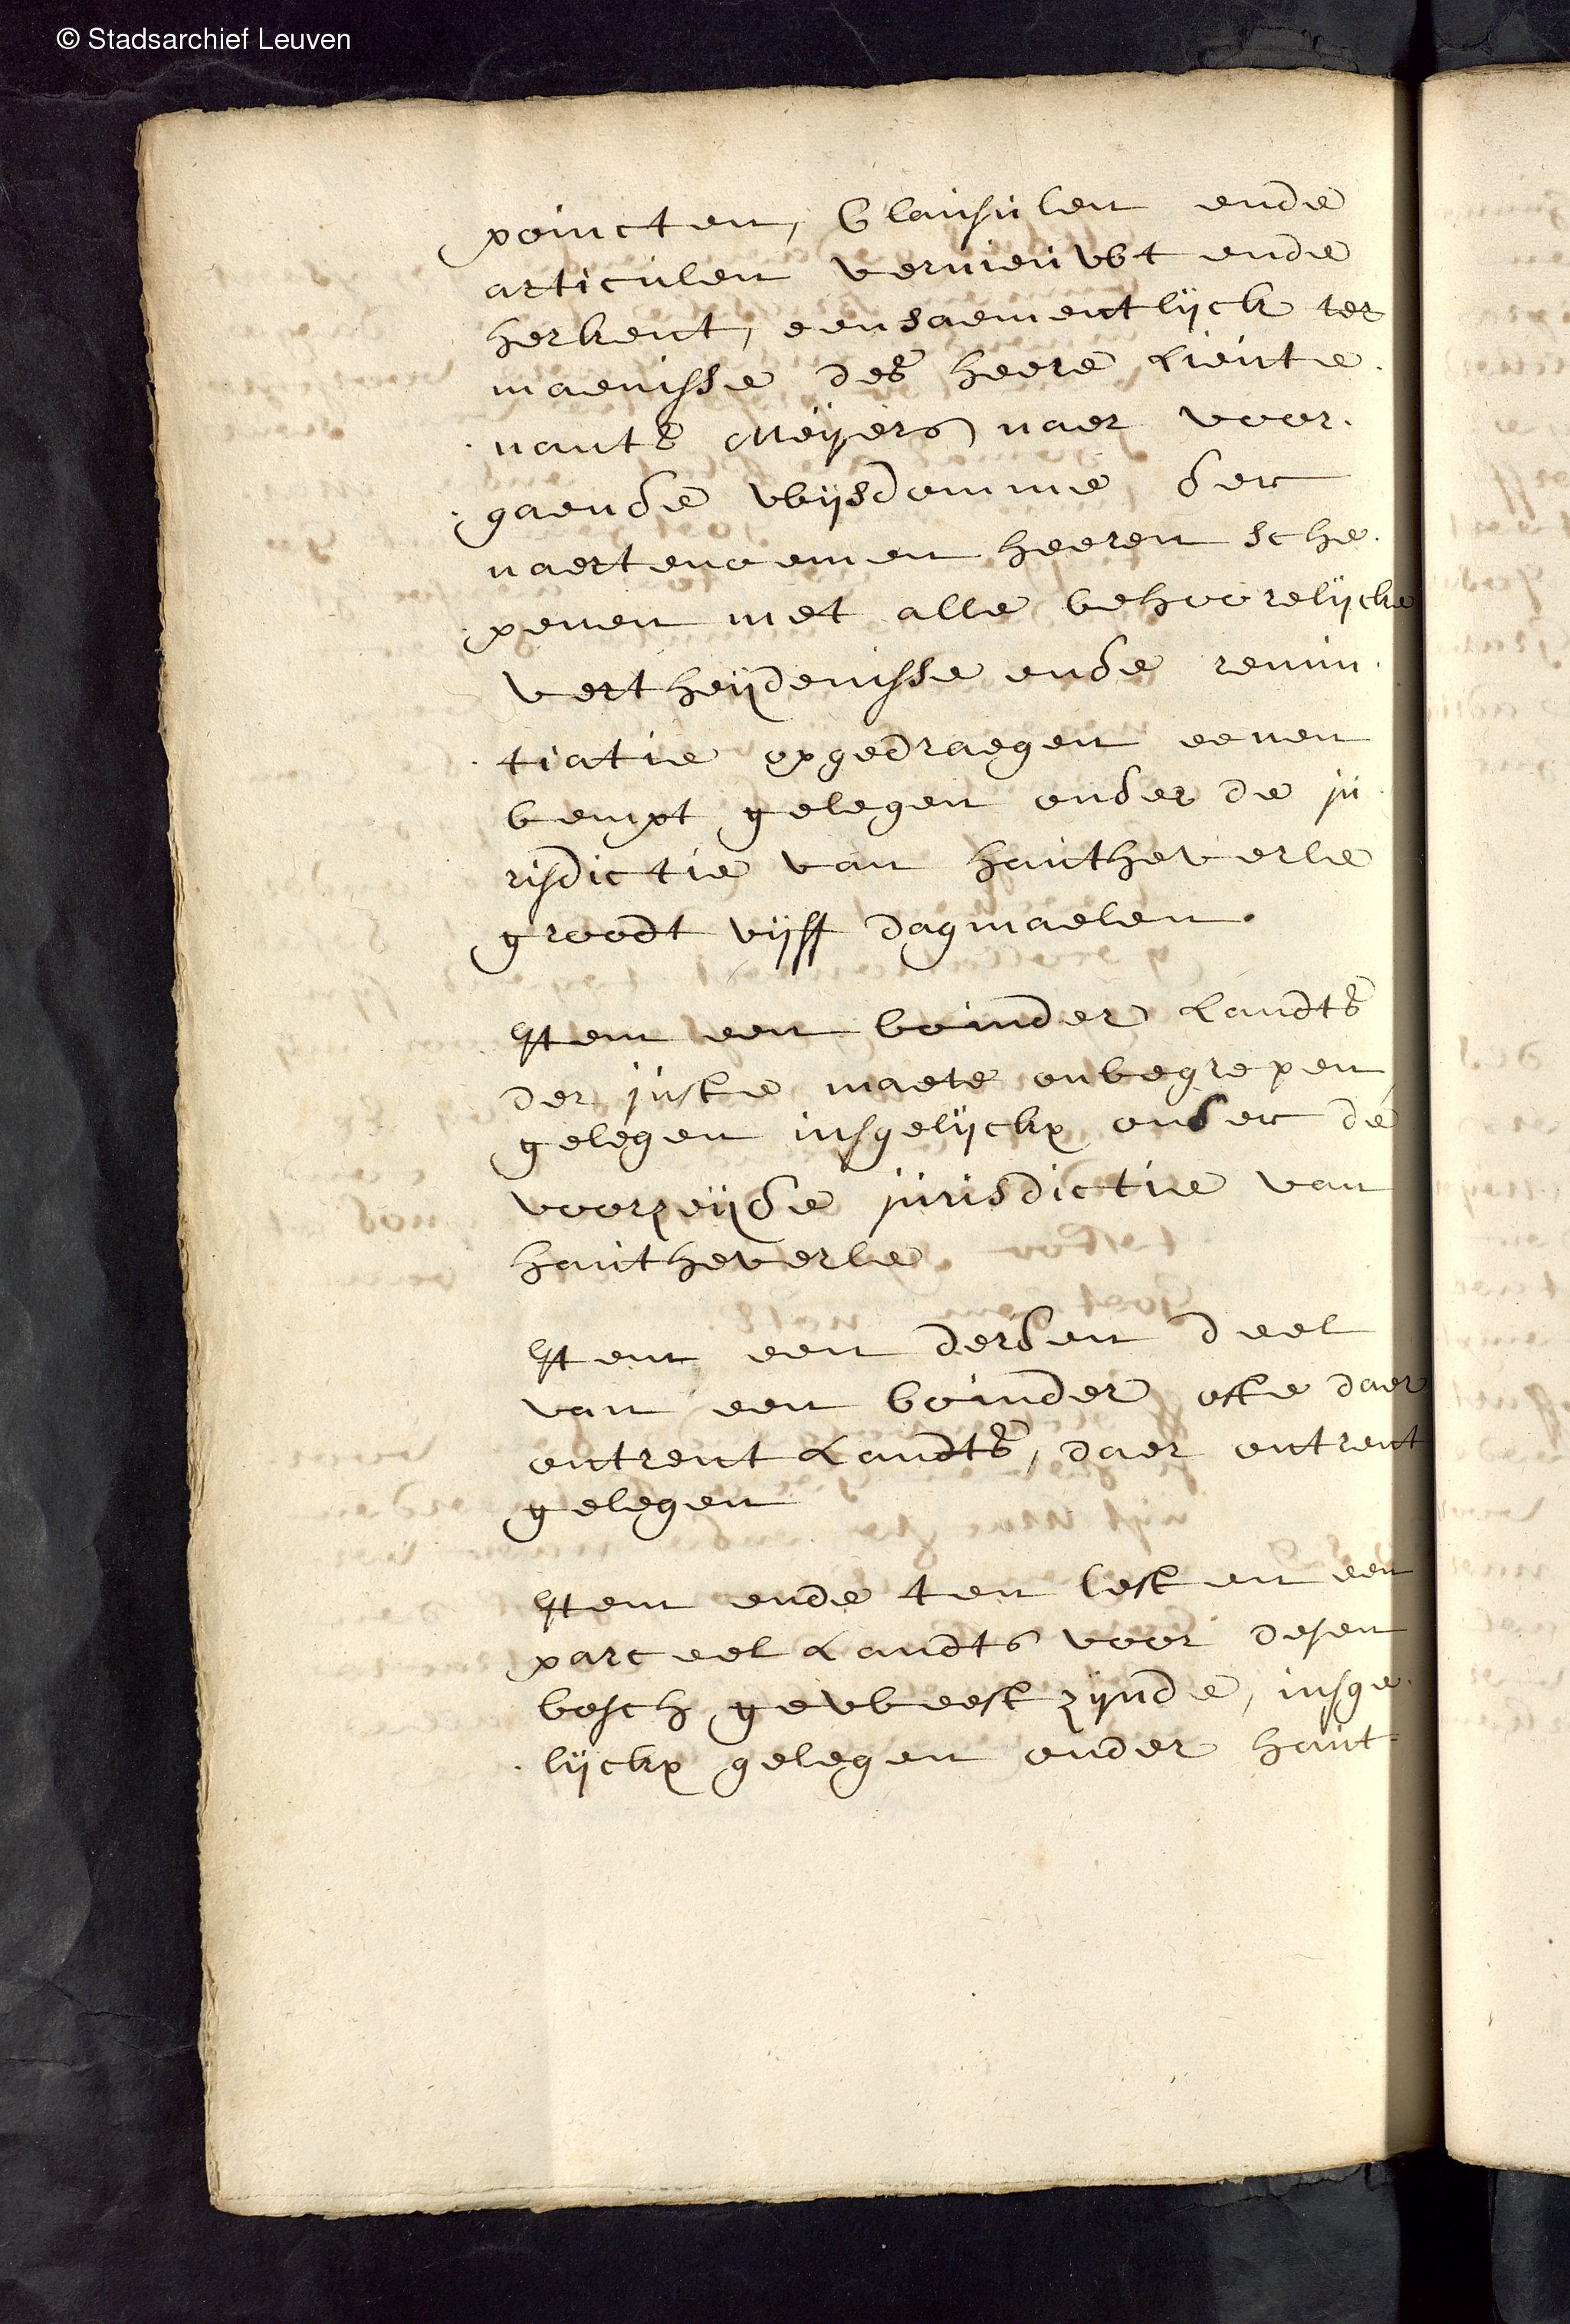 © Stadsarchief Leuven
poincten, Clausulen ende
articulen vernieuwt ende
herkent, eensaementlijck ter
maenisse des heere Lieute.
.nants Meijers naer voor.
.gaende wijsdomme der
naertenoemen heeren sche.
.penen met alle behoorelijcke
vertheijdenisse ende renun.
.tiatie opgedraegen eenen
bempt gelegen onder de ju
risdictie van hautheverle
groodt vijff dagmaelen.
Item een boinder Landts
der juste maete onbegrepen
gelegen insgelijckx onder de
voorzeijde jurisdictie van
hautheverle
Item een derden deel
van een boinder ofte daer
ontrent Landts, daer ontrent
gelegen
Item ende ten lesten een
parceel Landts voor desen
bosch geweest zijnde, insge.
.lijckx gelegen onder haut.